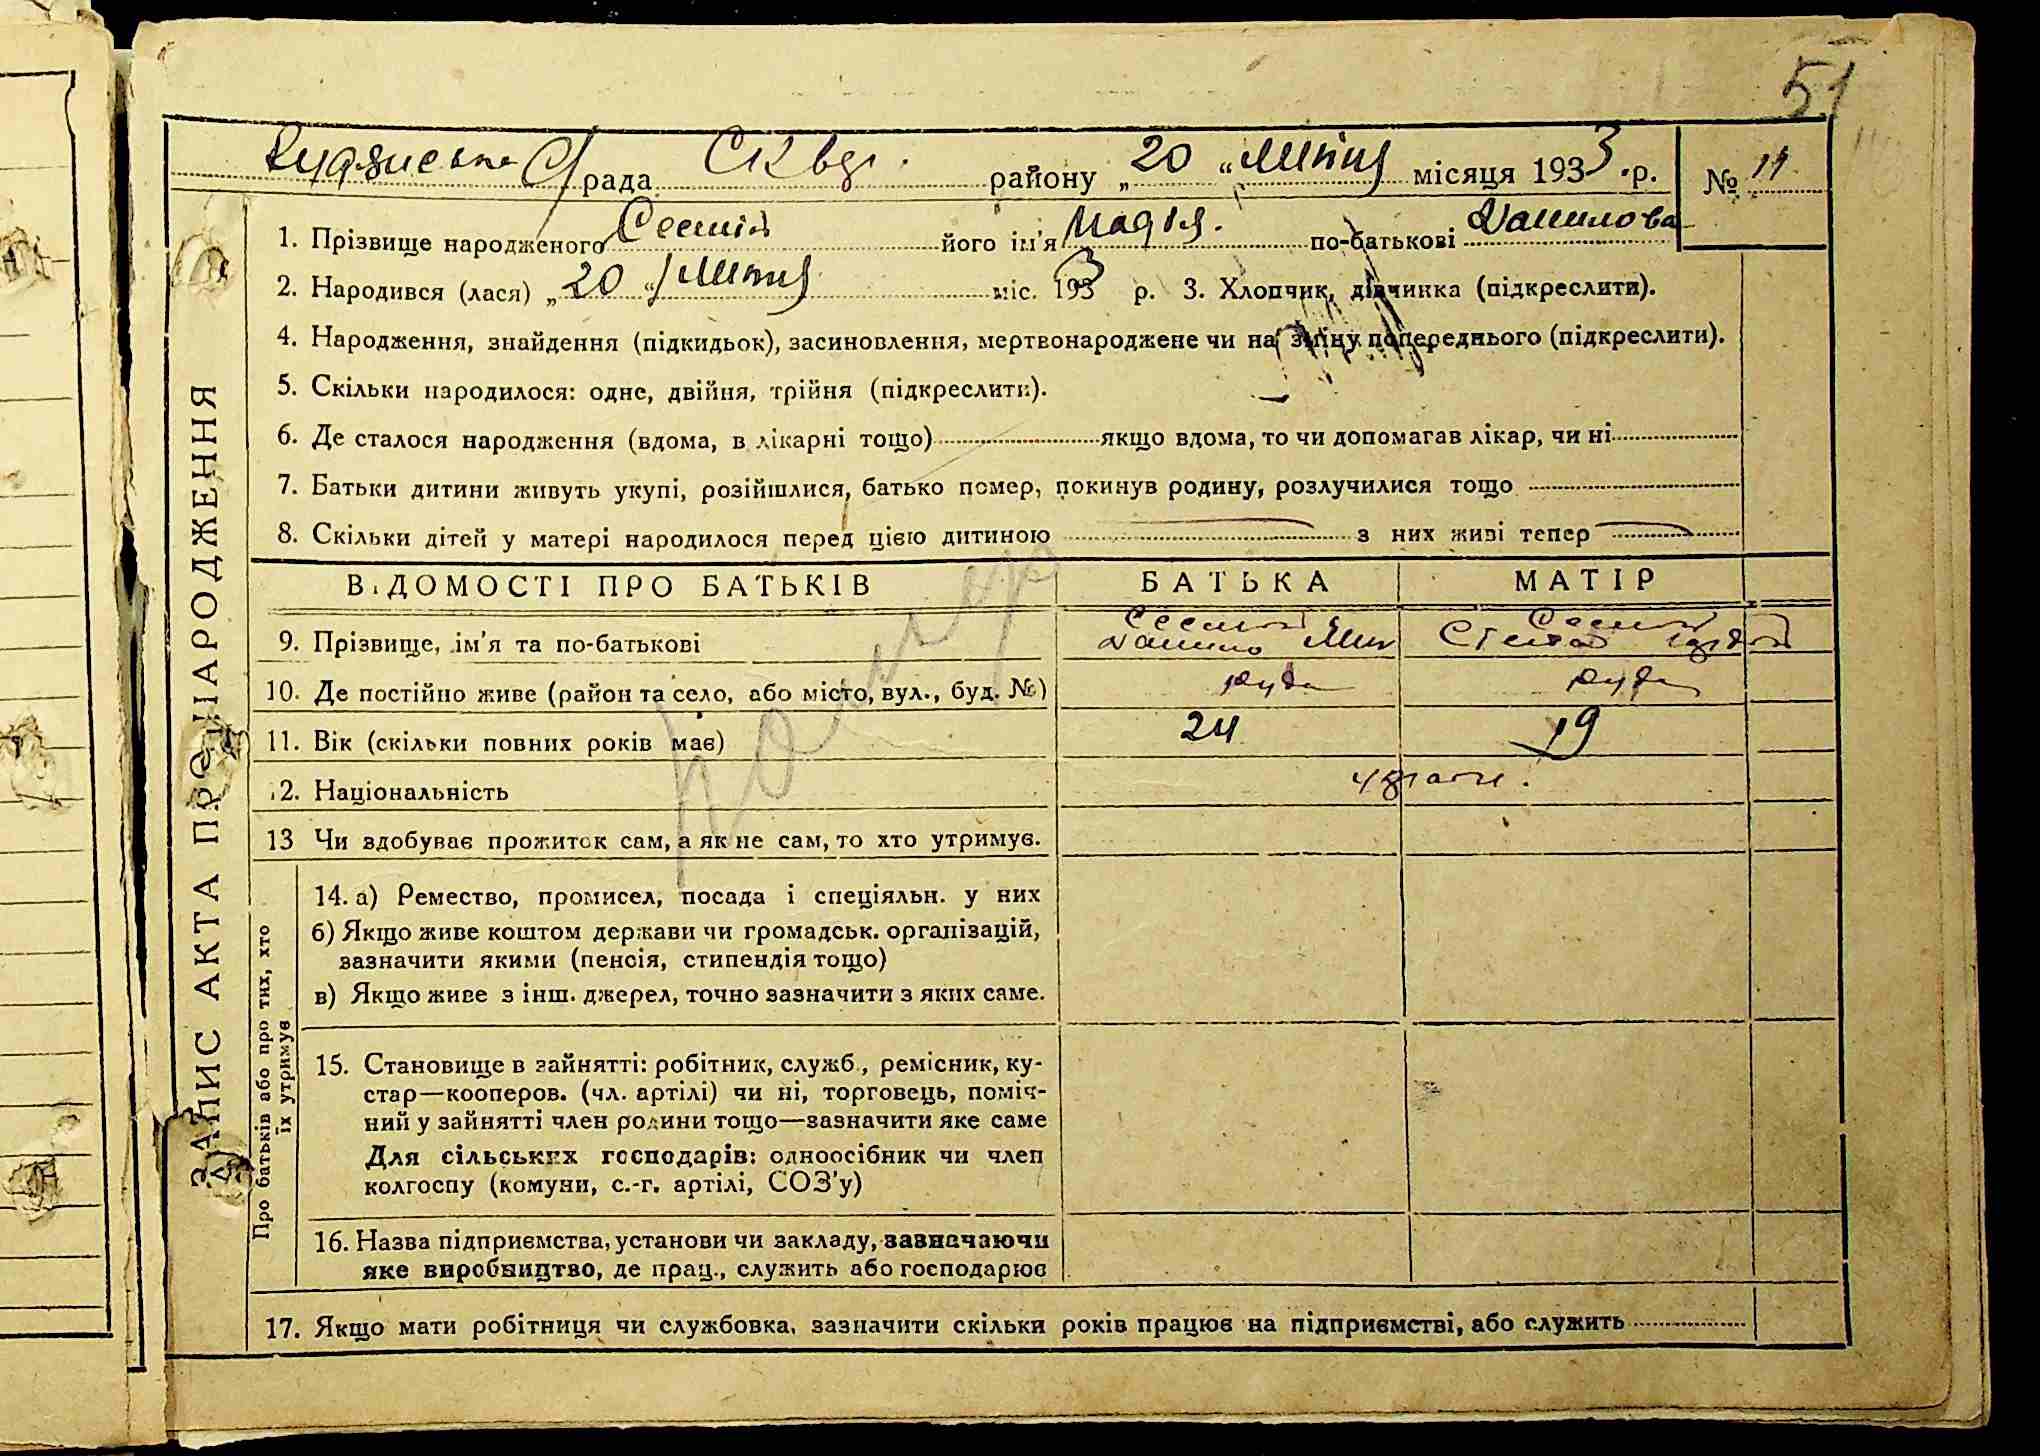 51
Рудянська с/рада Сквр. району „20“ липня місяця 1933 р. № 11
1. Прізвище народженого його ім'я Надія. по-батькові Данилова
2. Народився (лася) „20“ липня міс. 1933 р. 3. Хлопчик, дівчинка (підкреслити).
4. Народження, знайдення (підкидьок), засиновлення, мертвонароджене чи на зміну попереднього (підкреслити).
5. Скільки народилося: одне, двійня, трійня (підкреслити).
6. Де сталося народження (вдома, в лікарні тощо) якщо вдома, то чи допомагав лікар, чи ні
7. Батьки дитини живуть укупі, розійшлися, батько помер, покинув родину, розлучилися тощо
8. Скільки дітей у матері народилося перед цією дитиною з них живі тепер
ЗАПИС АКТА ПРО НАРОДЖЕННЯ
ВІДОМОСТІ ПРО БАТЬКІВ БАТЬКА МАТІР
9. Прізвище, ім'я та по-батькові Данило
10. Де постійно живе (район та село, або місто, вул., буд. №) Руда Руда
11. Вік (скільки повних років має) 24 19
12. Національність україн.
помер
13 Чи здобуває прожиток сам, а як не сам, то хто утримує.
Про батьків або про тих, хто їх утримує
14. а) Ремество, промисел, посада і спеціяльн. у них
б) Якщо живе коштом держави чи громадськ. організацій,
зазначити якими (пенсія, стипендія тощо)
в) Якщо живе з інш. джерел, точно зазначити з яких саме.
15. Становище в зайнятті: робітник, служб., ремісник, ку-
стар—кооперов. (чл. артілі) чи ні, торговець, поміч-
ний у зайнятті член родини тощо—зазначити яке саме
Для сільських господарів: одноосібник чи член
колгоспу (комуни, с.-г. артілі, СОЗ'у)
16. Назва підприємства, установи чи закладу, зазначаючи
яке виробництво, де прац., служить або господарює
17. Якщо мати робітниця чи службовка, зазначити скільки років працює на підприємстві, або служить